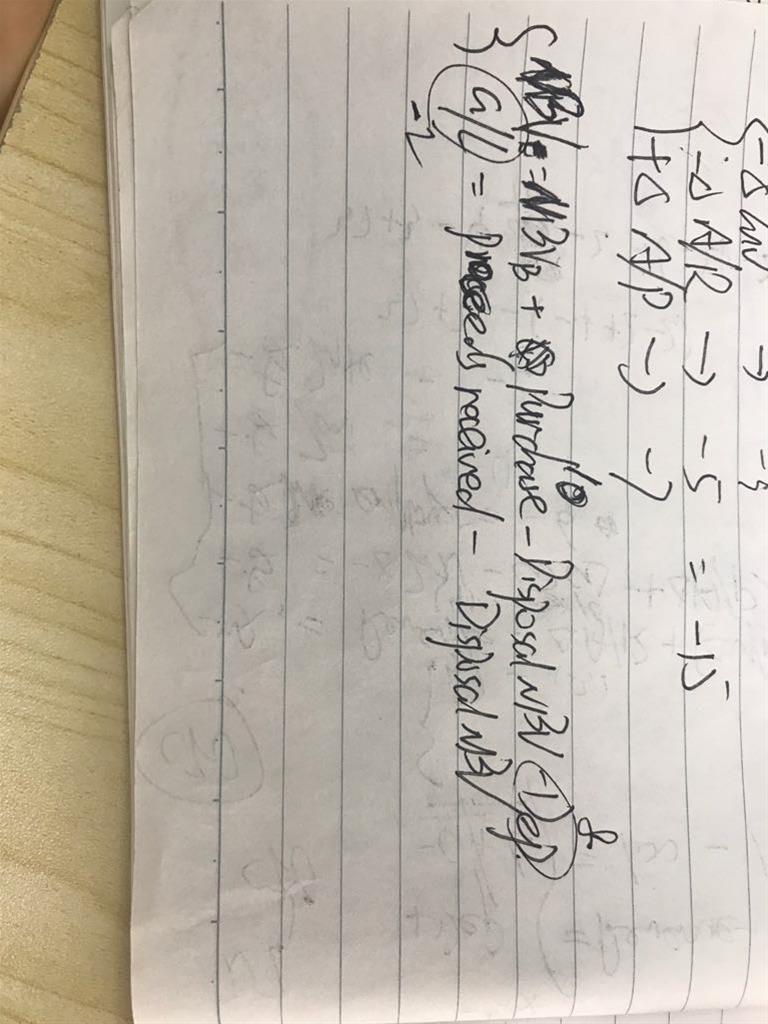 {-Δ inv → -3
-Δ A/R → -5 = -15
+Δ A/P → -7
10 8
{NBVE = NBVB + Purchase - Disposal NBV (-Dep.)
G/L = proceeds received - Disposal NBV
-2